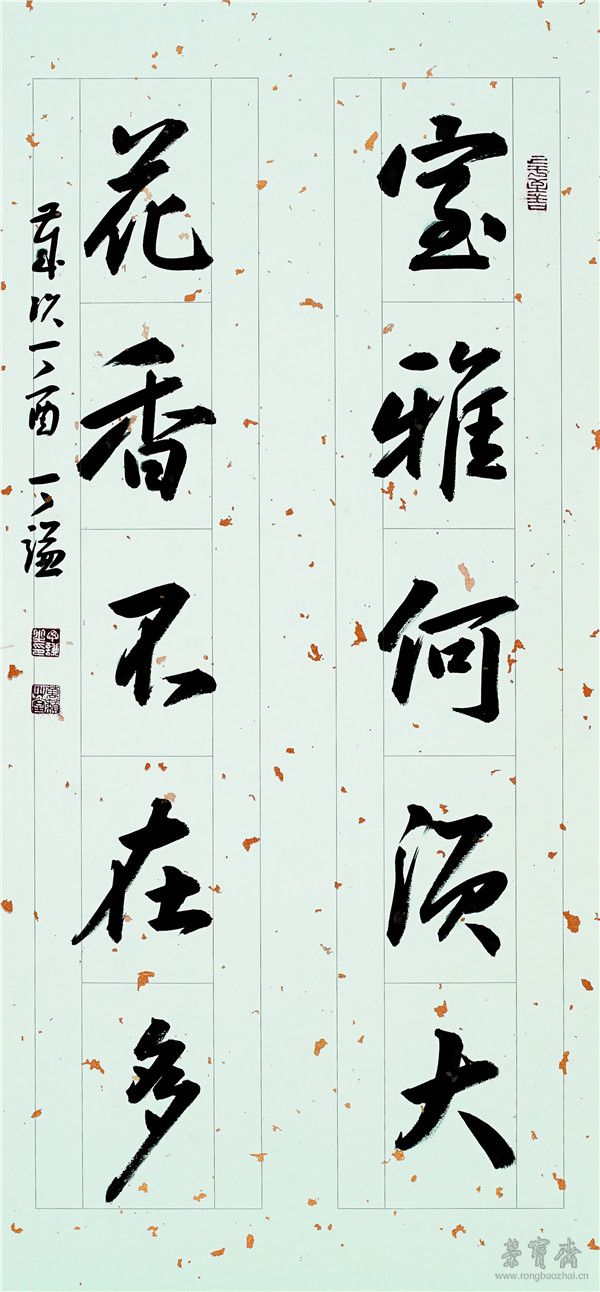 室雅何须大
花香不在多
岁次丁酉 丁谦
榮寶齋
www.rongbaozhai.cn